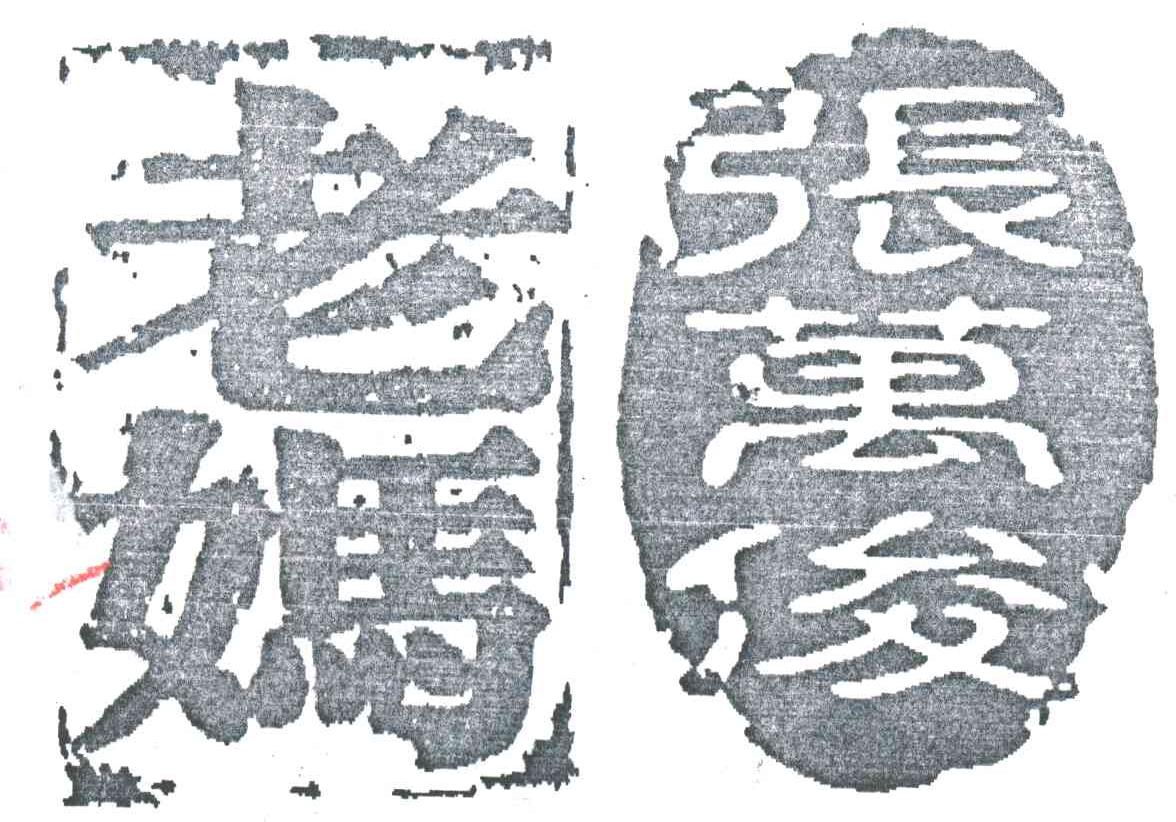 張萬俊
老媽